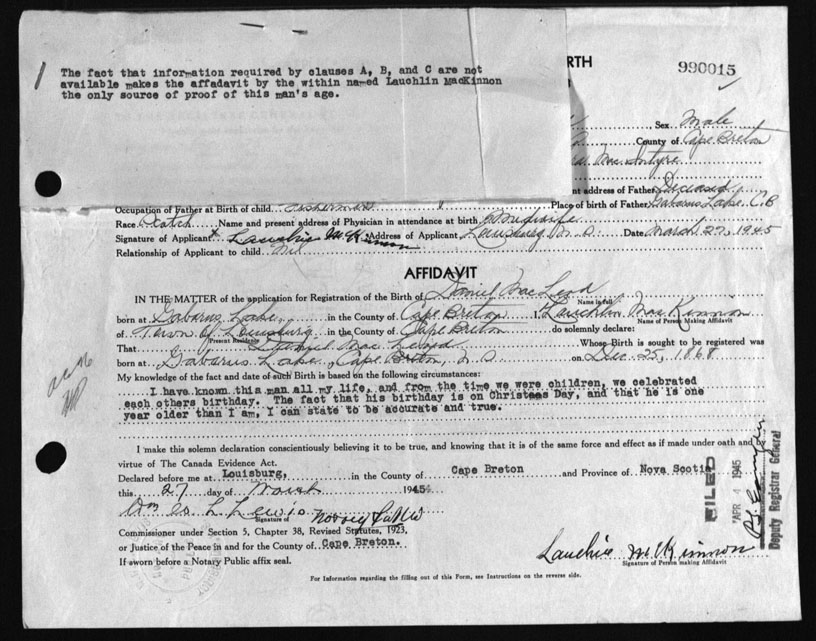 The fact that information required by clauses A, B, and C are not
available makes the affadavit by the within named Lauchlin MacKinnon
the only source of proof of this man's age.
RTH
990015
Sex Male
County of Cape Breton
MacIntyre
nt address of Father Deceased
Occupation of Father at Birth of child Fisherman Place of birth of Father Gabarus Lake, C B
Race Scotch Name and present address of Physician in attendance at birth Midwife
Signature of Applicant x Lauchie McKinnon Address of Applicant Louisburg N. S. Date March 27, 1945
Relationship of Applicant to child Nil
AFFIDAVIT
IN THE MATTER of the application for Registration of the Birth of Daniel MacLeod
Name in full
born at Gabarus Lake, in the County of Cape Breton I, Lauchlin MacKinnon
Name of Person Making Affidavit
of Town of Louisburg in the County of Cape Breton do solemnly declare:
Present Residence
That Daniel MacLeod Whose Birth is sought to be registered was
born at Gabarus Lake, Cape Breton, N S on Dec. 25, 1868
My knowledge of the fact and date of such Birth is based on the following circumstances:
I have known this man all my life, and from the time we were children, we celebrated
each others birthday. The fact that his birthday is on Christmas Day, and that he is one
year older than I am, I can state to be accurate and true.
I make this solemn declaration conscientiously believing it to be true, and knowing that it is of the same force and effect as if made under oath and
virtue of The Canada Evidence Act.
Declared before me at Louisburg, in the County of Cape Breton and Province of Nova Scotia
this 27 day of March 1945
Lewis
Signature of
Commissioner under Section 5, Chapter 38, Revised Statutes, 1923,
or Justice of the Peace in and for the County of Cape Breton.
If sworn before a Notary Public affix seal.
Lauchie McKinnon
Signature of Person making Affidavit
For Information regarding the filling out of this Form, see Instructions on the reverse side.
FILED
APR 4 1945
Deputy Registrar General